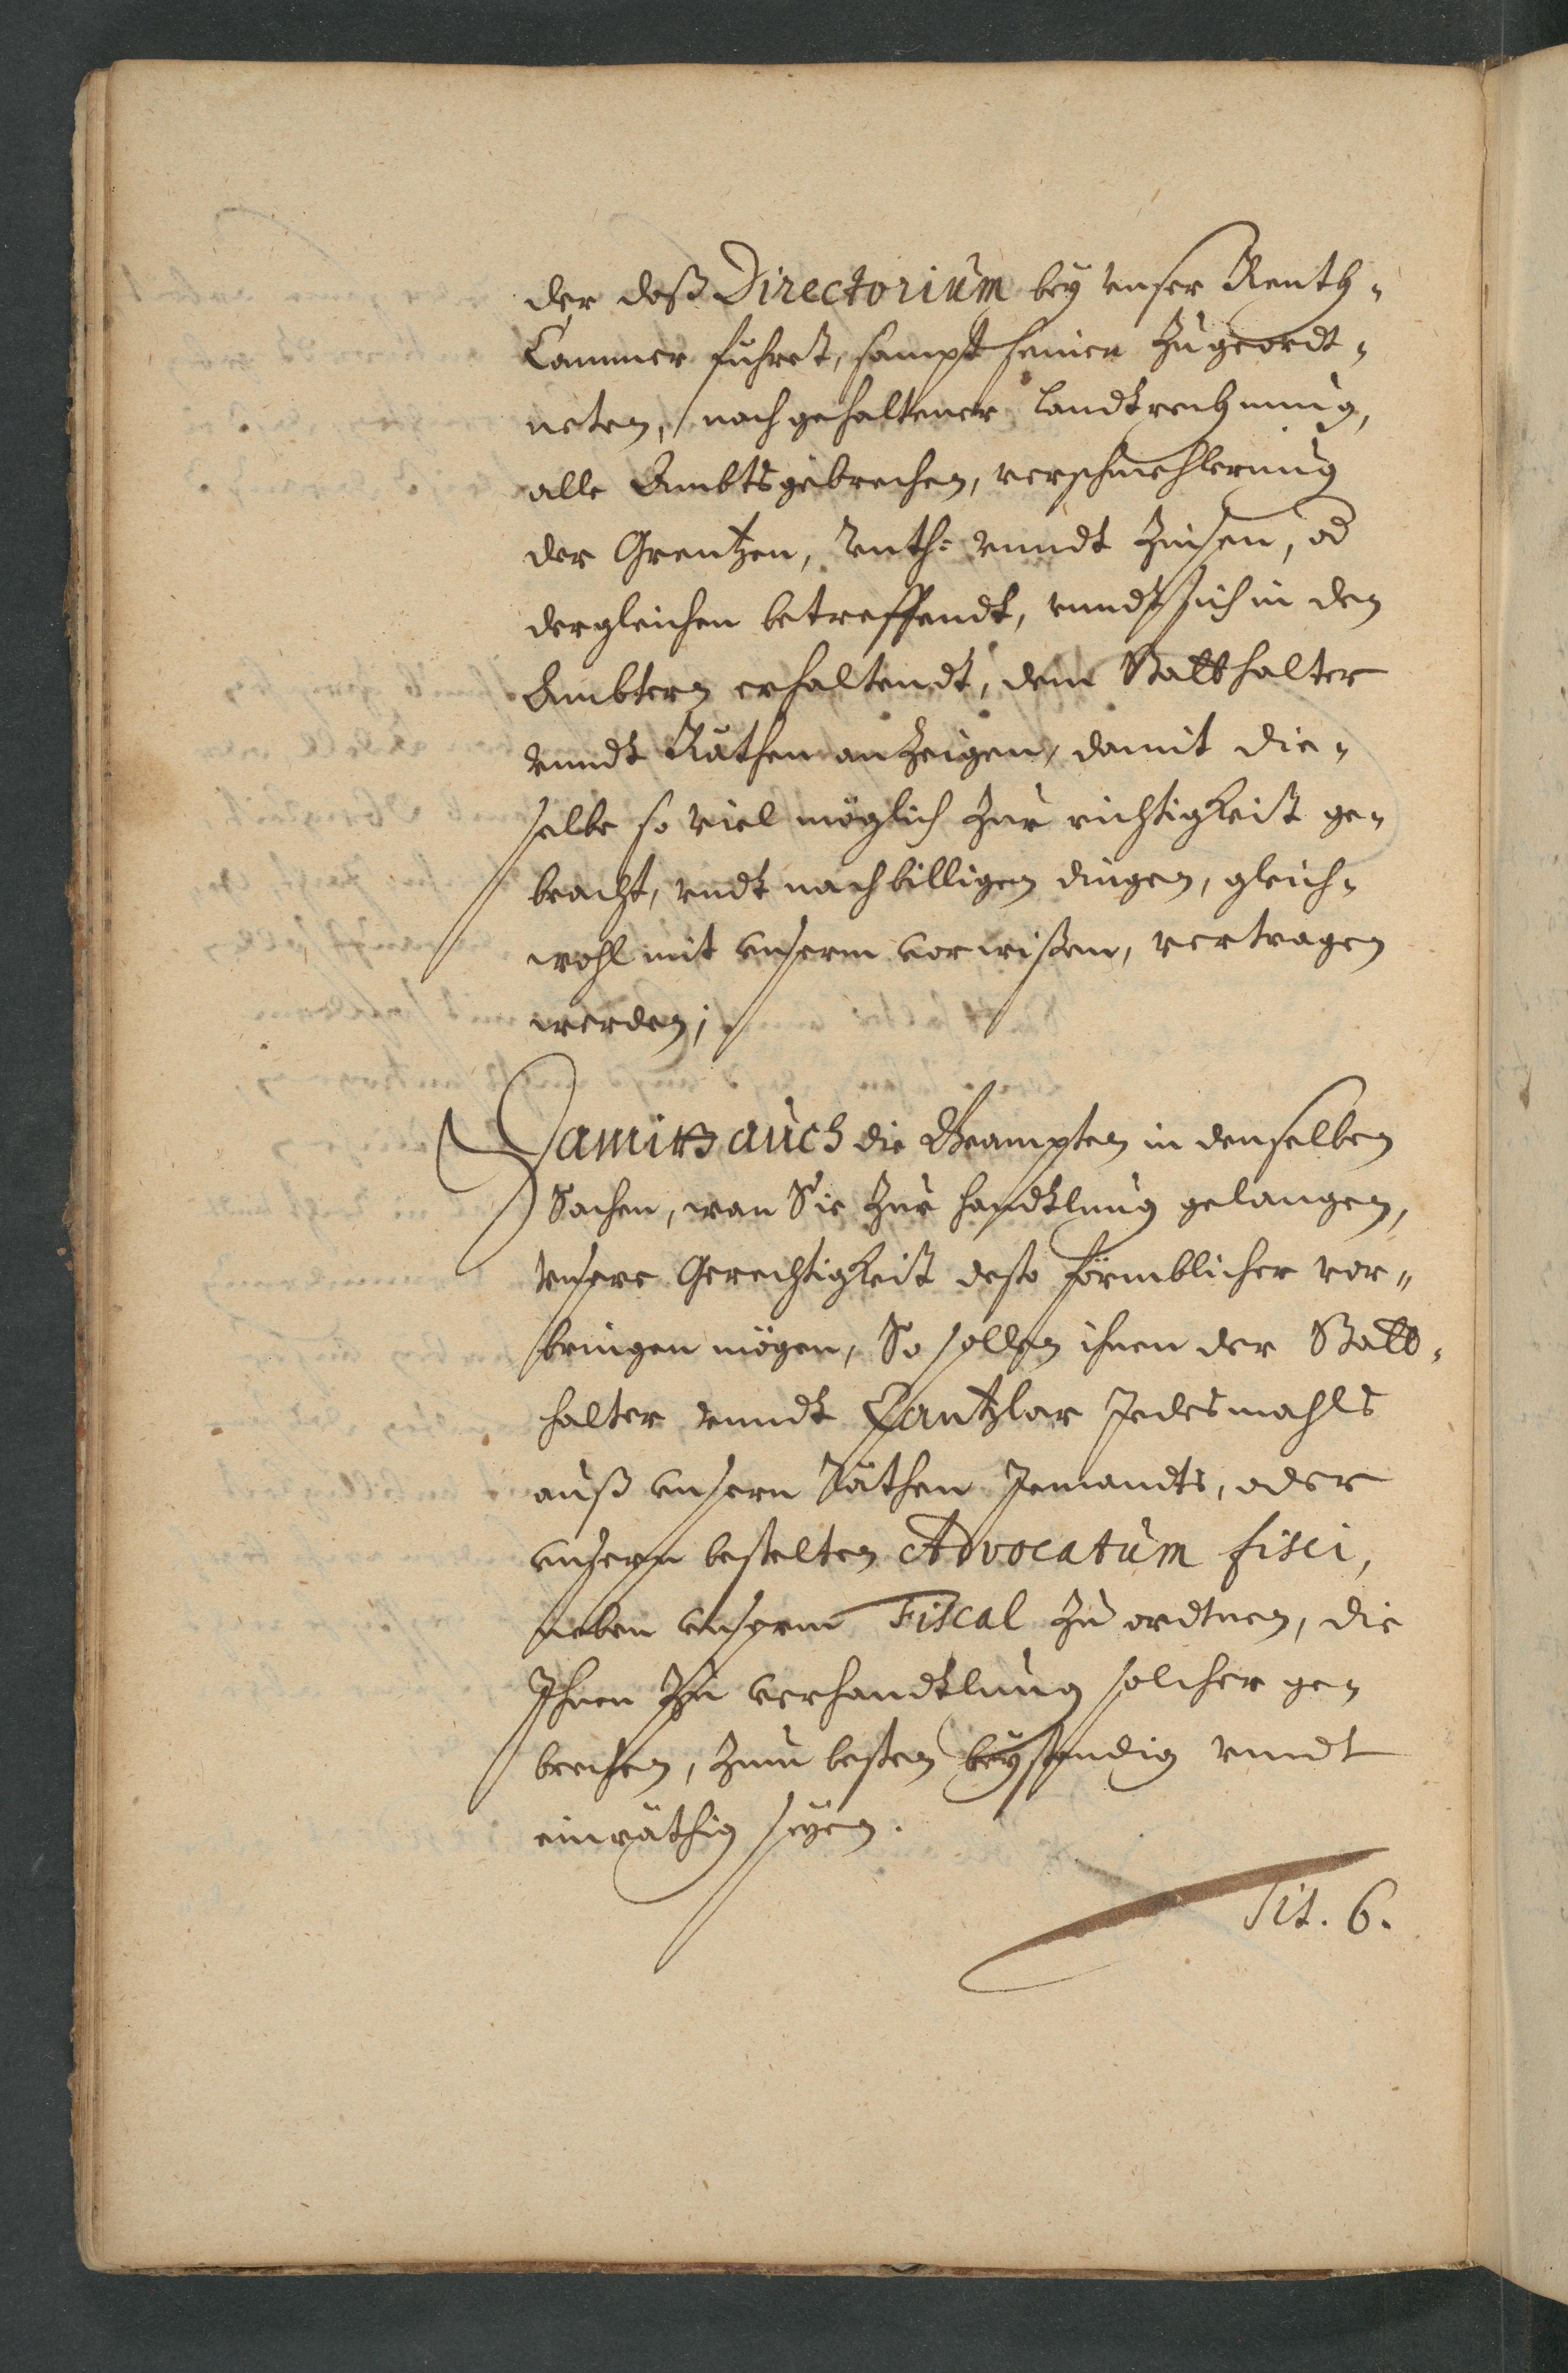 der daß Directorium bey vnser Renth-
Cammer führet, sampt seinen Zugeordt-
neten, nach gehaltener Landtrechnung,
alle Ambtsgebrechen, verschmehlerung
der Grentzen, Renth- vnndt Zinsen, od
dergleichen betreffendt, vnndt sich in den
Ambtern erhaltendt, dem Statthalter
vnndt Räthen anzeigen, damit die-
selbe so viel möglich zur richtigkeit ge-
bracht, vndt nach billigen dingen, gleich-
wohl mit vnserm vorwißen, vertragen
werden;
Damitt auch die Beampten in denselben
Sachen, wan Sie zur handtlung gelangen,
vnsere Gerechtigkeit desto förmblicher vor-
bringen mögen, So sollen ihnen der Statt-
halter vnndt Cantzlar Jedesmahls
auß vnsern Räthen Jemandts, oder
vnsern bestelten Advocatum fisci,
neben vnserm Fiscal zu ordtnen, die
Ihnen zu verhandtlung solcher ge-
brechen, zum besten beystendig vnndt
einräthig seyen.
Tit. 6.